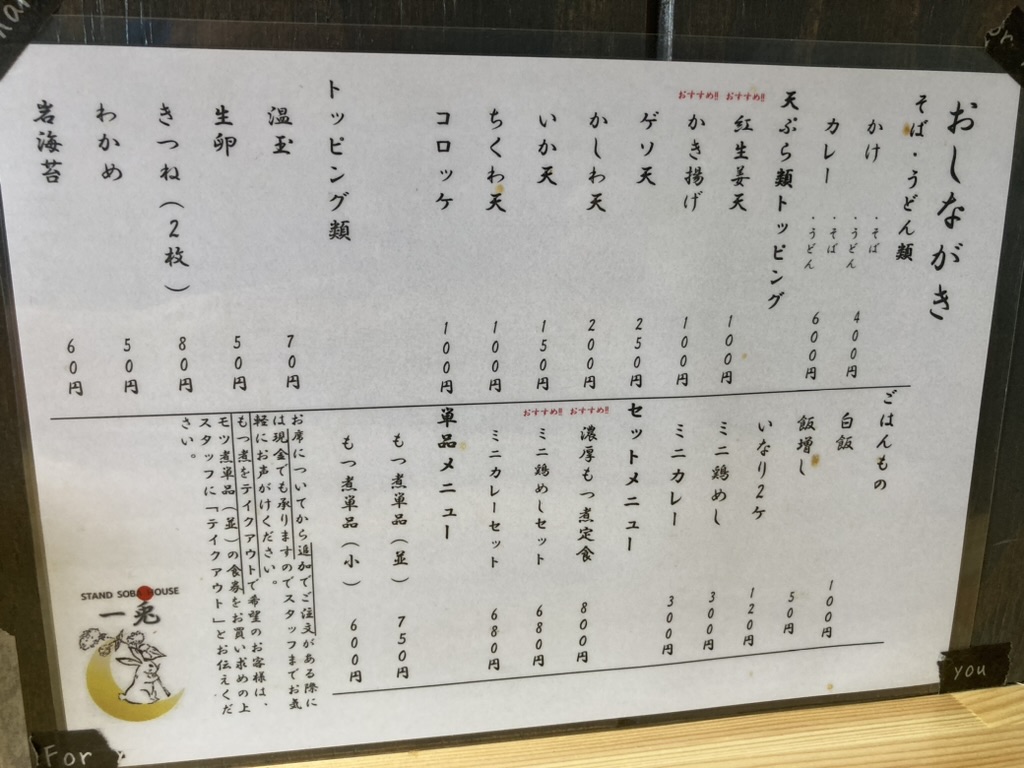 おしながき
そば・うどん類
かけ ・そば ・うどん 400円
カレー ・そば ・うどん 600円
天ぷら類トッピング
おすすめ!!
紅生姜天 100円
おすすめ!!
かき揚げ 100円
ゲソ天 250円
かしわ天 200円
いか天 150円
ちくわ天 100円
コロッケ 100円
トッピング類
温玉 70円
生卵 50円
きつね(2枚) 80円
わかめ 50円
岩海苔 60円
ごはんもの
白飯 100円
飯増し 50円
いなり2ケ 120円
ミニ鶏めし 300円
ミニカレー 300円
セットメニュー
おすすめ!!
濃厚もつ煮定食 800円
おすすめ!!
ミニ鶏めしセット 680円
ミニカレーセット 680円
単品メニュー
もつ煮単品(並) 750円
もつ煮単品(小) 600円
お席についてから追加でご注文がある際に
は現金でも承りますのでスタッフまでお気
軽にお声がけください。
もつ煮をテイクアウトで希望のお客様は、
モツ煮単品(並)の食券をお買い求めの上
スタッフに「テイクアウト」とお伝えくだ
さい。
STAND SOBA HOUSE
一兎
you
For